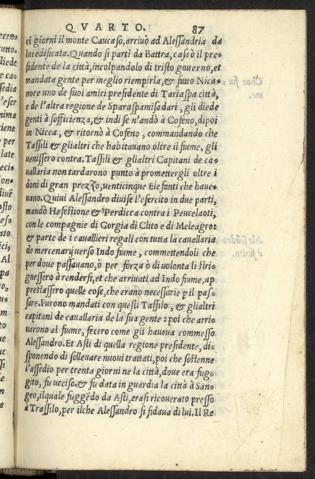 QVARTO. 87
ci giorni il monte Caucaso, arriuò ad Alessandria da
lui edificata. Quando si partì da Battra, cassò il pre-
sidente de la città, incolpandolo di tristo gouerno, et
mandata gente per meglio riempirla, & fatto Nica-
nore uno de suoi amici presidente di Tariaspa città,
e de l'altra regione de Sparaspamisadari, gli diede
genti à sofficienza, & indi se n'andò à Cofeno, dipoi
in Nicea, & ritornò à Cofeno, commandando che
Tassili & gli altri che habitauano oltre il fiume, gli
uenissero contra. Tassili & gli altri Capitani de ca-
uallaria non tardarono punto à promettergli oltre i
doni di gran prezzo, uenticinque Elefanti che haue-
uano. Quiui Alessandro diuise l'esercito in due parti,
mandò Hefestione & Perdicca contra i Peucelaoti,
con le compagnie di Gorgia di Clito e di Meleagro:
& parte de i cauallieri regali con tutta la cauallaria
de mercenarij uerso Indo fiume, commettendoli che
per doue passauano, ò per forza ò di uolontà li strin-
gnessero à rendersi, et che arriuati ad Indo fiume, ap
prestassero quelle cose, che erano necessarie p il pas-
sare. Furono mandati con questi Tassilo, & gli altri
capitani de cauallaria de la sua gente: poi che arri-
uarono al fiume, fecero come gli haueua commesso
Alessandro. Et Asti di quella regione presidente, di-
sponendo di solleuare nuoui trattati, poi che sostenne
l'assedio per trenta giorni ne la città, doue era fug-
gito, fu ucciso, & fu data in guardia la città à San-
geo, ilquale fuggẽdo da Asti, erasi ricouerato presso
à Trassilo, per ilche Alessandro si fidaua di lui. Il Re